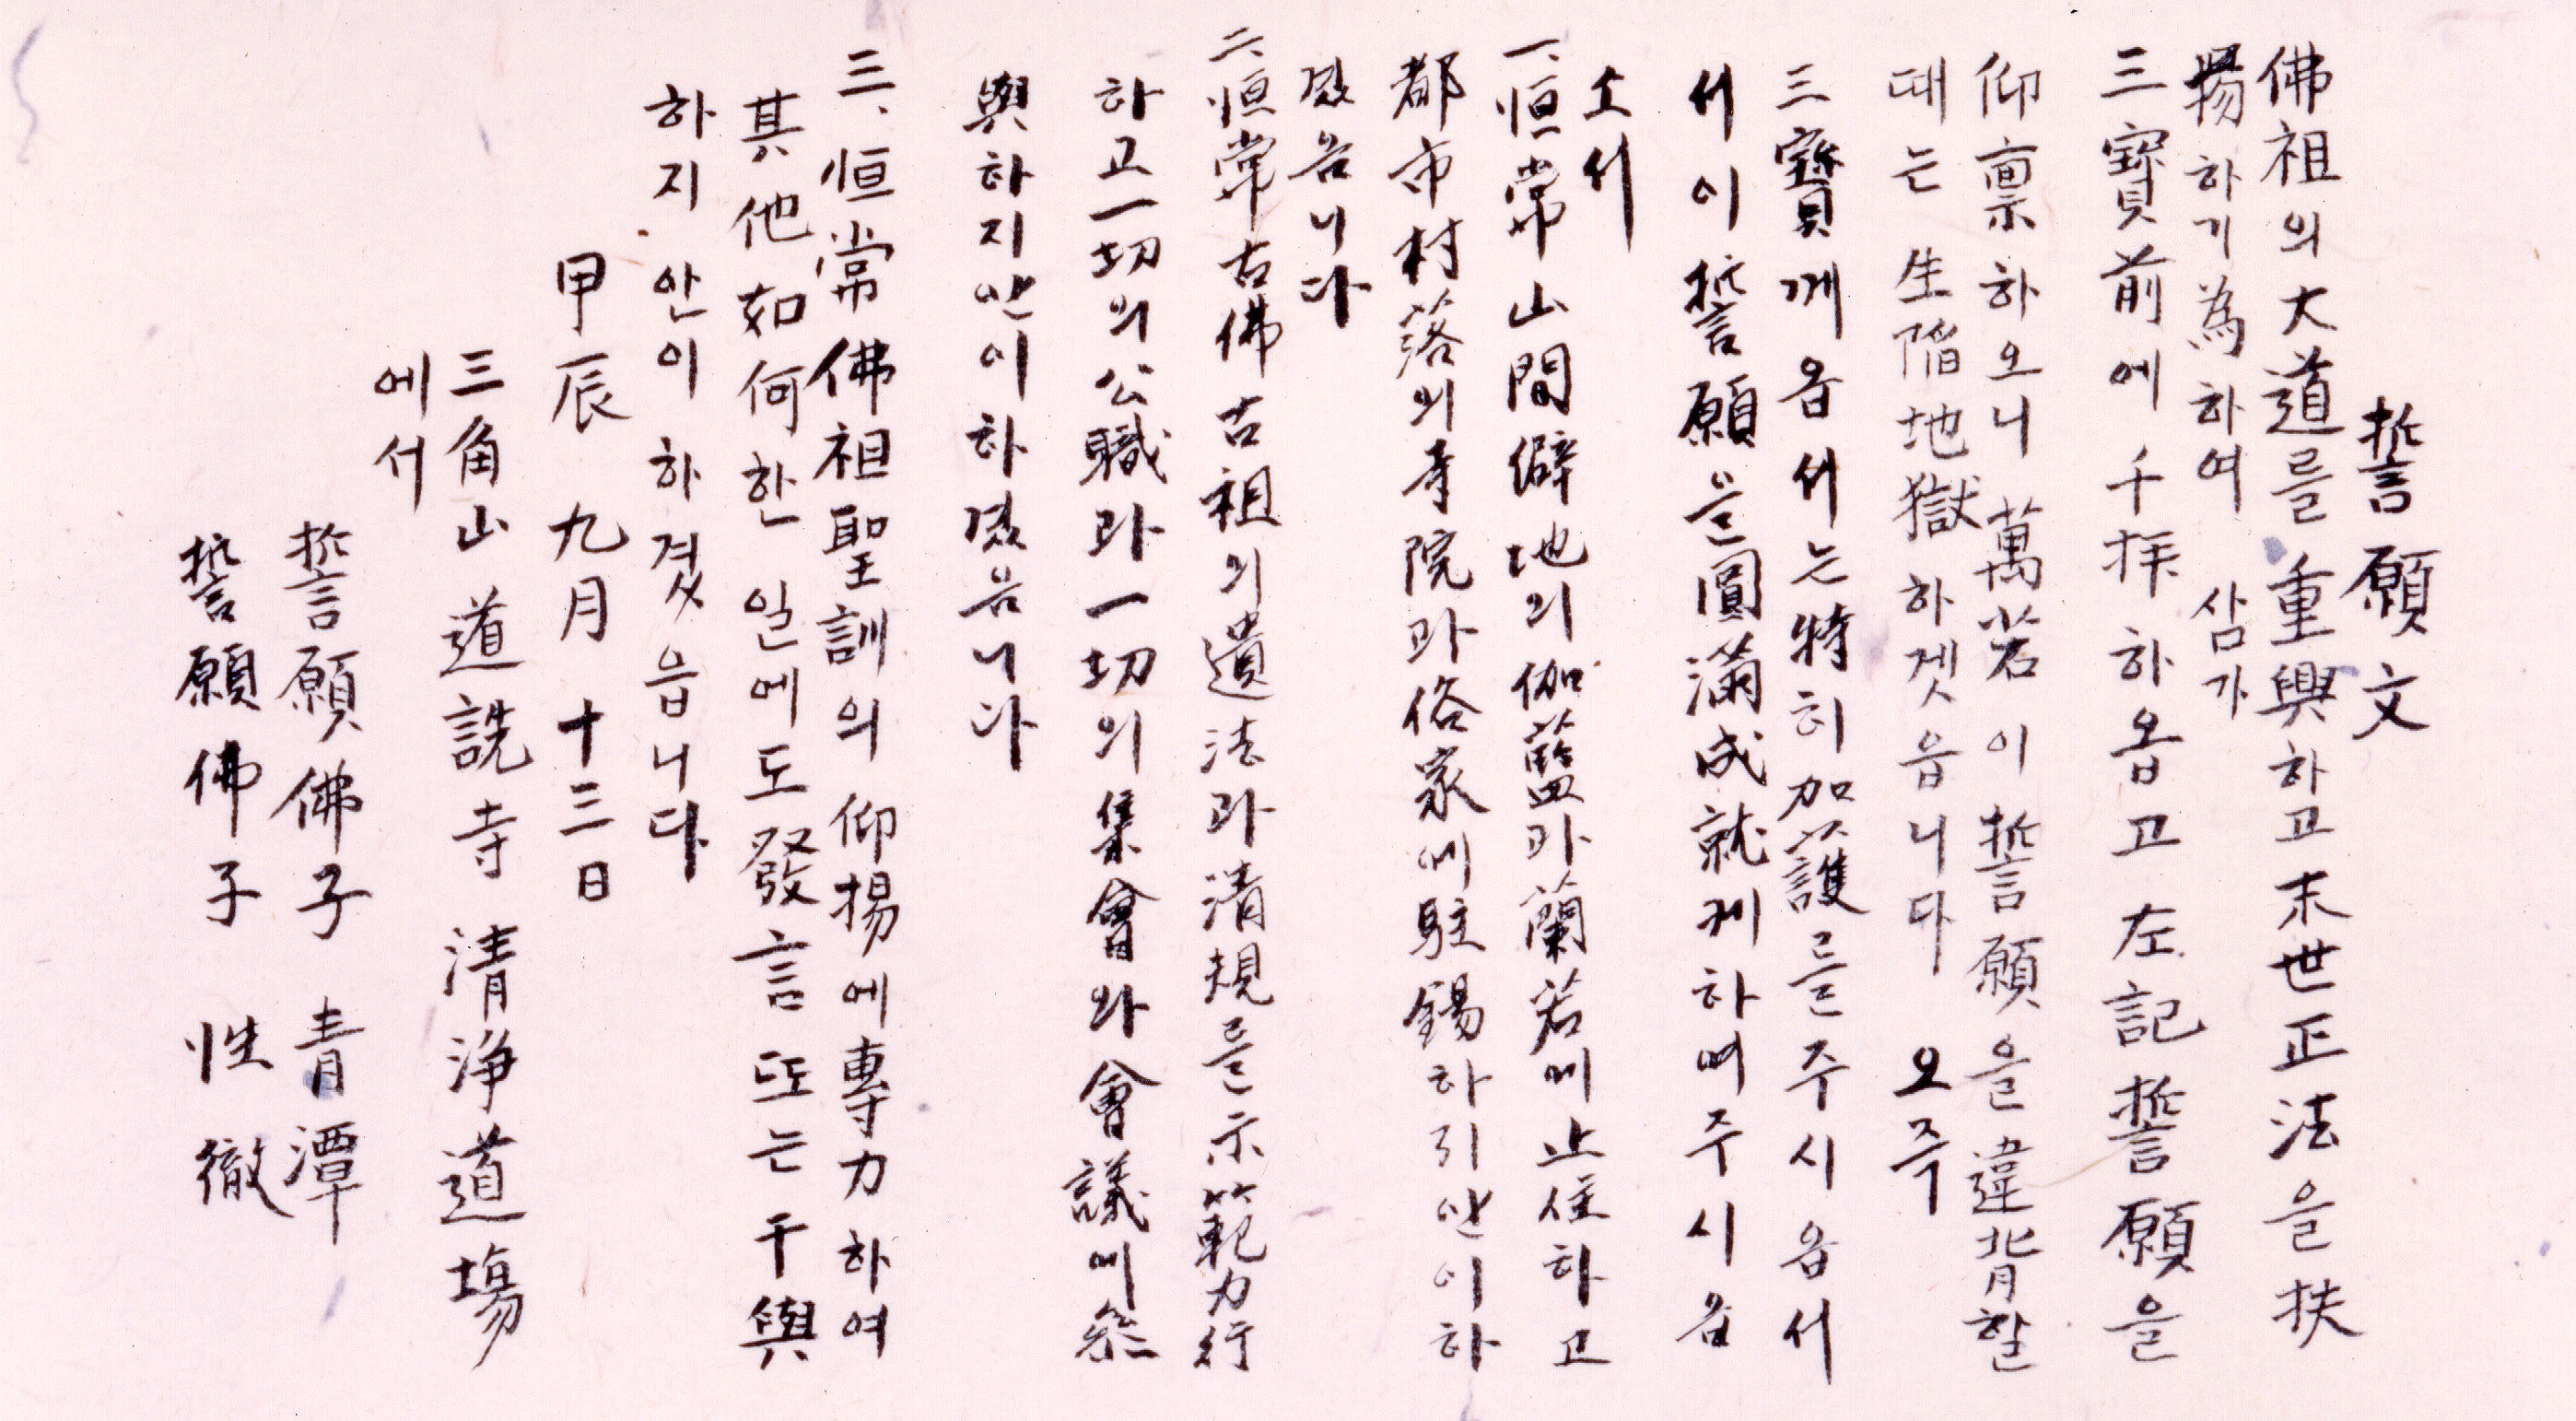 誓願文
佛祖의 大道를 重興하고 末世正法을 扶
揚하기 為하여 삼가
三寶前에 千拜하옵고 左記 誓願을
仰稟하오니 萬若 이 誓願을 違背할
때는 生陷地獄하겟읍니다 오즉
三寶께옵서는 特히 加護를 주시옵서
서 이 誓願을 圓滿成就케하여주시옵
소서
一、恒常 山間僻地의 伽藍과 蘭若에 止住하고
都市村落의 寺院과 俗家에 駐錫하지 안이하
겠읍니다
二、恒常 古佛古祖의 遺法과 清規를 示範力行
하고 一切의 公職과 一切의 集會와 會議에 参
與하지 안이하겠읍니다
三、恒常 佛祖聖訓의 仰揚에 專力하여
其他 如何한 일에도 發言 또는 干與
하지 안이하겠읍니다
甲辰 九月 十三日
三角山 道詵寺 清淨道場
에서
誓願佛子 青潭
誓願佛子 性徹